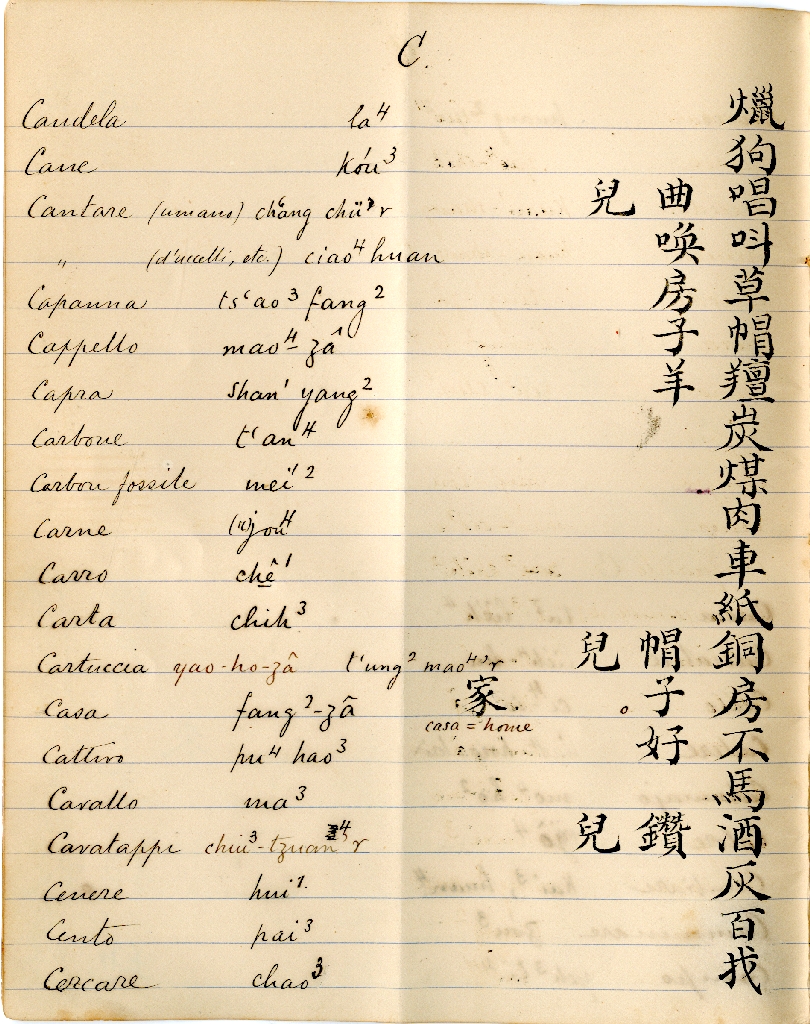 C.
Candela la4 爉
Cane kóu3 狗
Cantare (umano) ch'ang chü' r 唱曲兒
" (d'uccelli, etc.) ciao4 huan 呌喚
Capanna ts'ao3 fang2 草房
Cappello mao4-zâ 帽子
Capra shan1 yang2 羶羊
Carbone t'an4 炭
Carbon fossile mei2 煤
Carne jou4 肉
Carro chê1 車
Carta chih3 紙
Cartuccia yao-ho-zâ t'ung2 mao4'r 銅帽兒
Casa fang2-zâ 家 房子。
casa = home
Cattivo pu4 hao3 不好
Cavallo ma3 馬
Cavatappi chiu3-tzuan4 r 酒鑽兒
Cenere hui1. 灰
Cento pai3 百
Cercare chao3 找